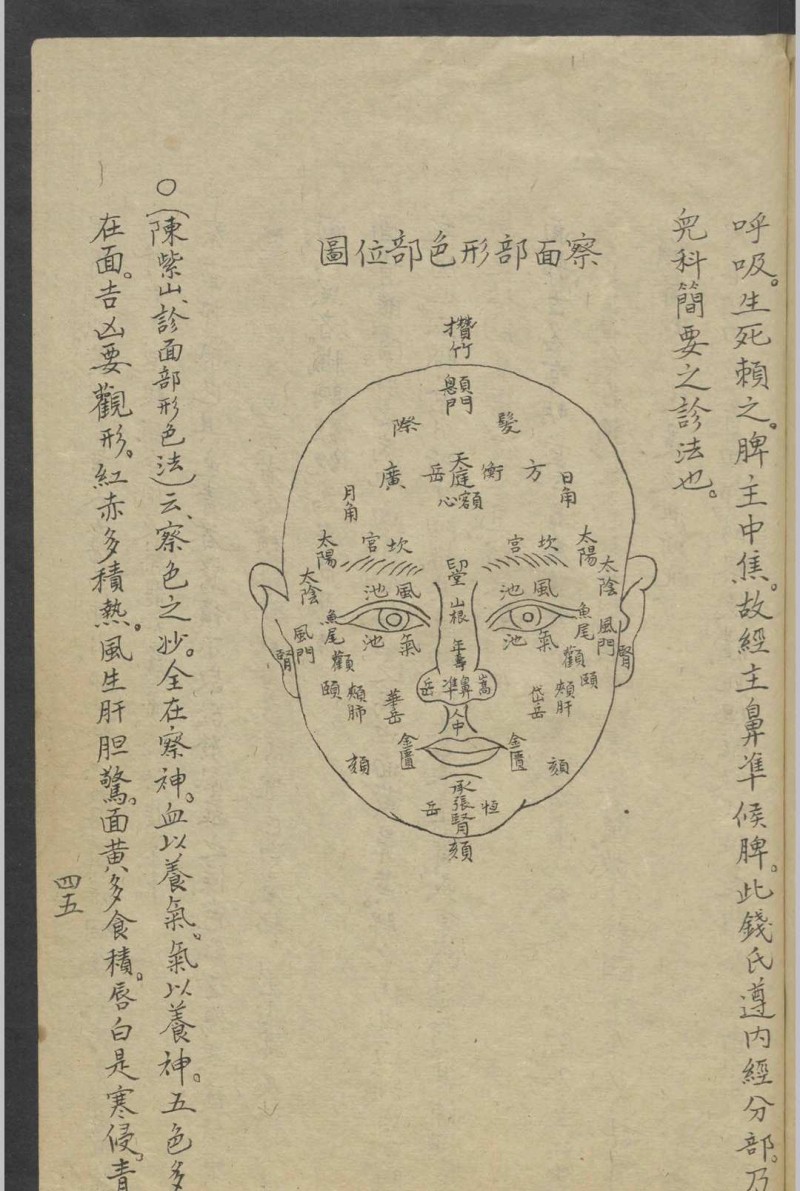 呼吸。生死賴之。脾主中焦。故經主鼻準候脾。此錢氏遵内經分部。乃
兒科簡要之診法也。
察面部形色部位圖
攢竹
顖門
髮際
方衡
天庭
岳廣
額心
日角
月角
太陽
太陰
坎宮
坎宮
太陽
太陰
印堂
風池
風池
山根
魚尾
魚尾
氣池
氣池
風門
風門
腎
腎
年壽
顴
顴
頤
頤
頰肝
頰肺
岱岳
華岳
嵩岳
鼻準
人中
金匱
金匱
頦
頦
承漿腎
恒岳
頦
○(陳紫山、診面部形色法)云、察色之妙。全在察神。血以養氣。氣以養神。五色多
在面。吉凶要觀形。紅赤多積熱。風生肝胆驚。面黃多食積。唇白是寒侵。青
四五